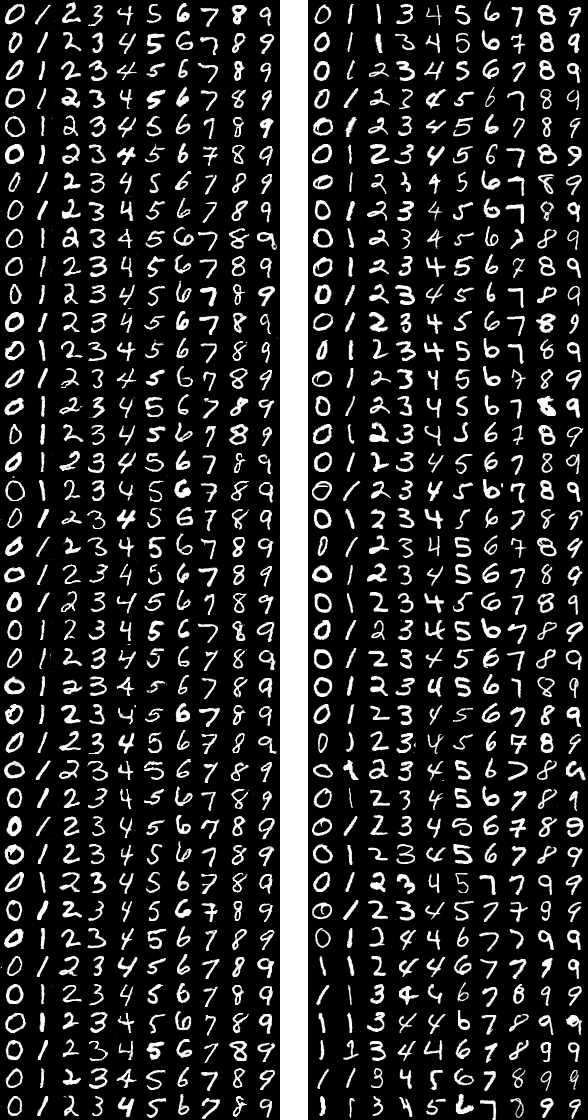 0 1 2 3 4 5 6 7 8 9
0 1 2 3 4 5 6 7 8 9
0 1 2 3 4 5 6 7 8 9
0 1 2 3 4 5 6 7 8 9
0 1 2 3 4 5 6 7 8 9
0 1 2 3 4 5 6 7 8 9
0 1 2 3 4 5 6 7 8 9
0 1 2 3 4 5 6 7 8 9
0 1 2 3 4 5 6 7 8 9
0 1 2 3 4 5 6 7 8 9
0 1 2 3 4 5 6 7 8 9
0 1 2 3 4 5 6 7 8 9
0 1 2 3 4 5 6 7 8 9
0 1 2 3 4 5 6 7 8 9
0 1 2 3 4 5 6 7 8 9
0 1 2 3 4 5 6 7 8 9
0 1 2 3 4 5 6 7 8 9
0 1 2 3 4 5 6 7 8 9
0 1 2 3 4 5 6 7 8 9
0 1 2 3 4 5 6 7 8 9
0 1 2 3 4 5 6 7 8 9
0 1 2 3 4 5 6 7 8 9
0 1 2 3 4 5 6 7 8 9
0 1 2 3 4 5 6 7 8 9
0 1 2 3 4 5 6 7 8 9
0 1 2 3 4 5 6 7 8 9
0 1 2 3 4 5 6 7 8 9
0 1 2 3 4 5 6 7 8 9
0 1 2 3 4 5 6 7 8 9
0 1 2 3 4 5 6 7 8 9
0 1 2 3 4 5 6 7 8 9
0 1 2 3 4 5 6 7 8 9
0 1 2 3 4 5 6 7 8 9
0 1 2 3 4 5 6 7 8 9
0 1 2 3 4 5 6 7 8 9
0 1 2 3 4 5 6 7 8 9
0 1 2 3 4 5 6 7 8 9
0 1 2 3 4 5 6 7 8 9
0 1 2 3 4 5 6 7 8 9
0 1 2 3 4 5 6 7 8 9
0 1 1 3 4 5 6 7 8 9
0 1 1 3 4 5 6 7 8 9
0 1 2 3 4 5 6 7 8 9
0 1 2 3 4 5 6 7 8 9
0 1 2 3 4 5 6 7 8 9
0 1 2 3 4 5 6 7 8 9
0 1 2 3 4 5 6 7 8 9
0 1 2 3 4 5 6 7 8 9
0 1 2 3 4 5 6 7 8 9
0 1 2 3 4 5 6 7 8 9
0 1 2 3 4 5 6 7 8 9
0 1 2 3 4 5 6 7 8 9
0 1 2 3 4 5 6 7 8 9
0 1 2 3 4 5 6 7 8 9
0 1 2 3 4 5 6 7 8 9
0 1 2 3 4 5 6 7 8 9
0 1 2 3 4 5 6 7 8 9
0 1 2 3 4 5 6 7 8 9
0 1 2 3 4 5 6 7 8 9
0 1 2 3 4 5 6 7 8 9
0 1 2 3 4 5 6 7 8 9
0 1 2 3 4 5 6 7 8 9
0 1 2 3 4 5 6 7 8 9
0 1 2 3 4 5 6 7 8 9
0 1 2 3 4 5 6 7 8 9
0 1 2 3 4 5 6 7 8 9
0 1 2 3 4 5 6 7 8 9
0 2 3 4 5 6 7 8 9
0 1 2 3 4 5 6 7 8 9
0 1 2 3 4 5 6 7 8 9
0 1 2 3 4 5 6 7 8 9
0 1 2 3 4 5 7 7 9 9
0 1 2 3 4 5 7 7 9 9
0 1 2 4 4 6 7 7 9 9
1 1 2 4 4 6 7 7 9 9
1 1 3 4 4 6 7 8 9 9
1 1 3 4 4 6 7 8 9
1 1 3 4 4 6 7 8 9 9
1 1 3 4 5 6 7 8 9 9
1 1 3 4 5 6 7 9 9